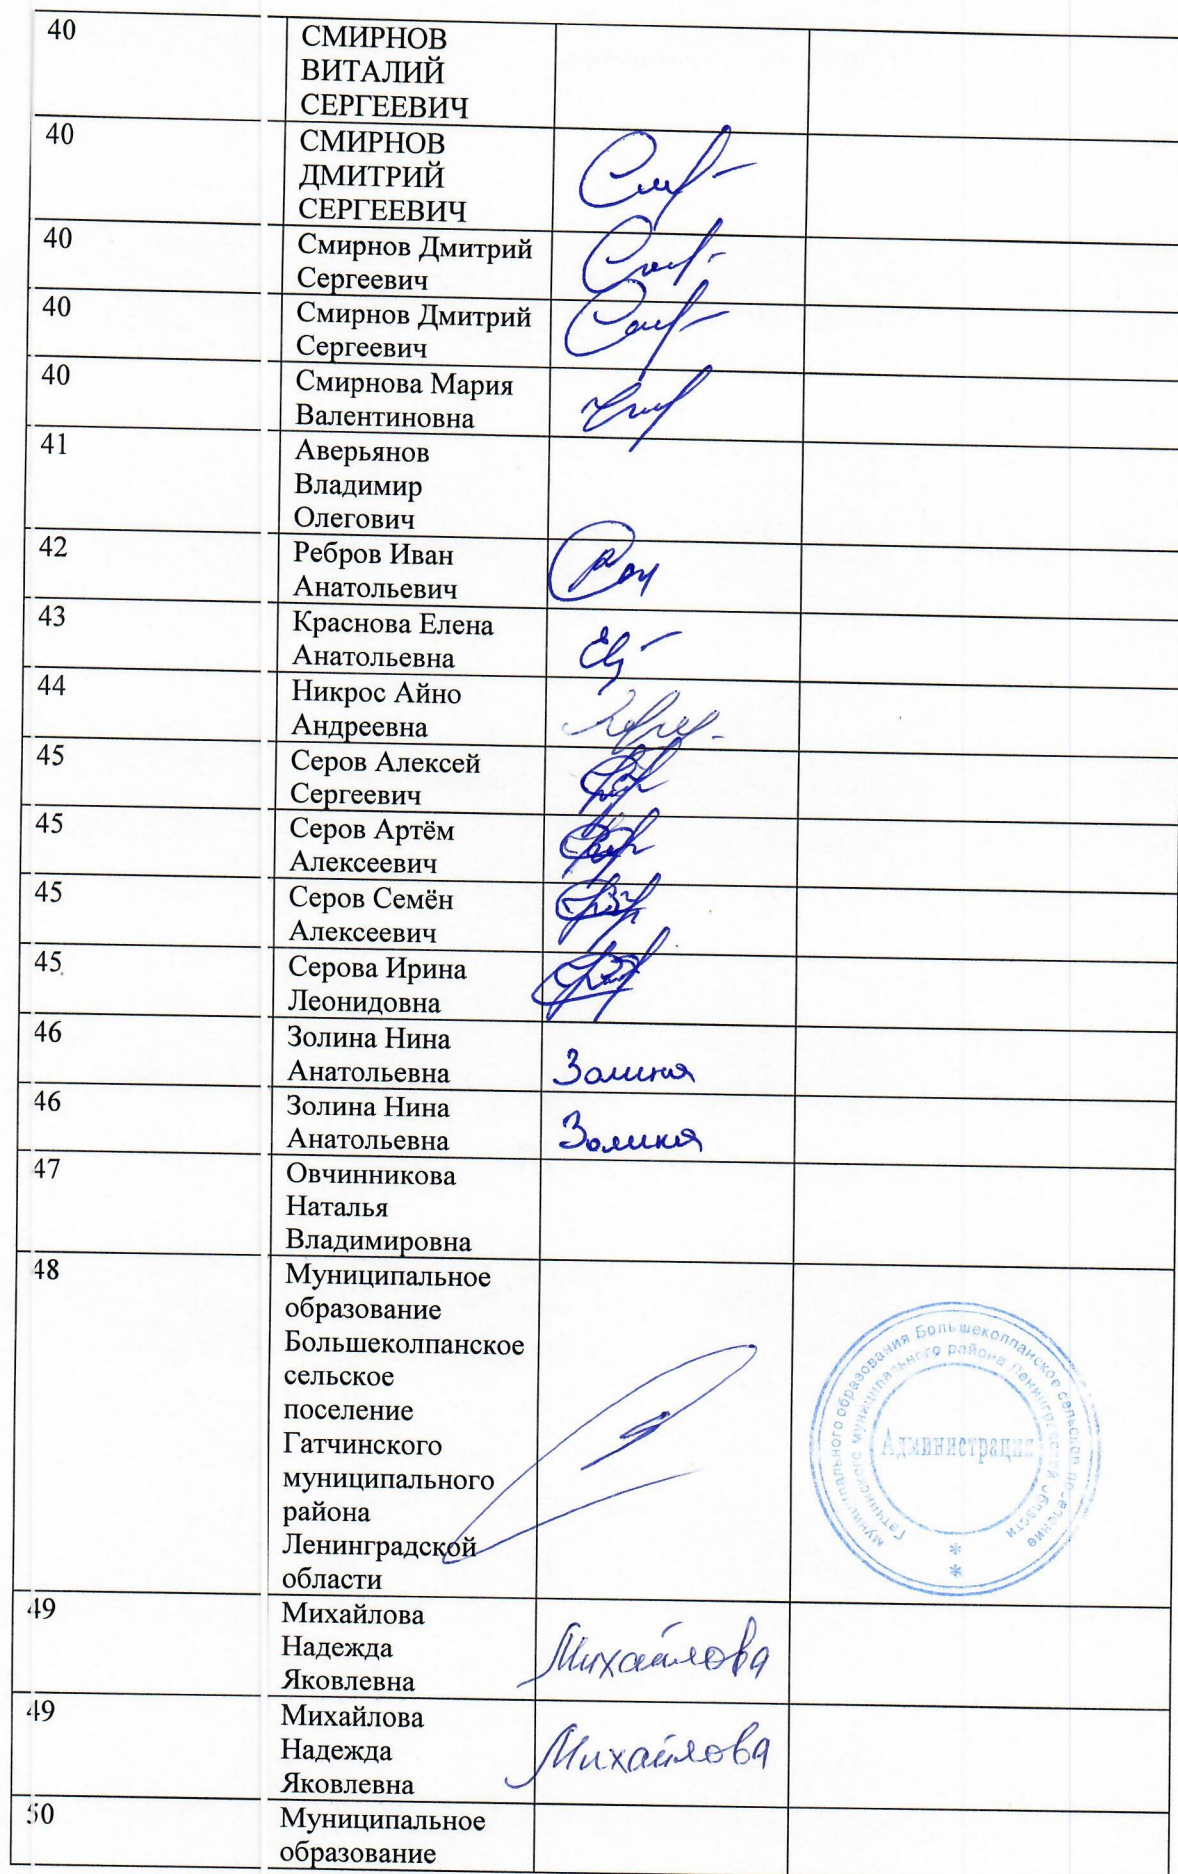 40
СМИРНОВ
ВИТАЛИЙ
СЕРГЕЕВИЧ
40
СМИРНОВ
ДМИТРИЙ
СЕРГЕЕВИЧ
40
Смирнов Дмитрий
Сергеевич
40
Смирнов Дмитрий
Сергеевич
40
Смирнова Мария
Валентиновна
41
Аверьянов
Владимир
Олегович
42
Ребров Иван
Анатольевич
43
Краснова Елена
Анатольевна
44
Никрос Айно
Андреевна
45
Серов Алексей
Сергеевич
45
Серов Артём
Алексеевич
45
Серов Семён
Алексеевич
45
Серова Ирина
Леонидовна
46
Золина Нина
Анатольевна
Золина
46
Золина Нина
Анатольевна
Золина
47
Овчинникова
Наталья
Владимировна
48
Муниципальное
образование
Большеколпанское
сельское
поселение
Гатчинского
муниципального
района
Ленинградской
области
муниципального образования Большеколпанское сельское поселение
Гатчинского муниципального района Ленинградской области
Администрация
* *
49
Михайлова
Надежда
Яковлевна
Михайлова
49
Михайлова
Надежда
Яковлевна
Михайлова
50
Муниципальное
образование